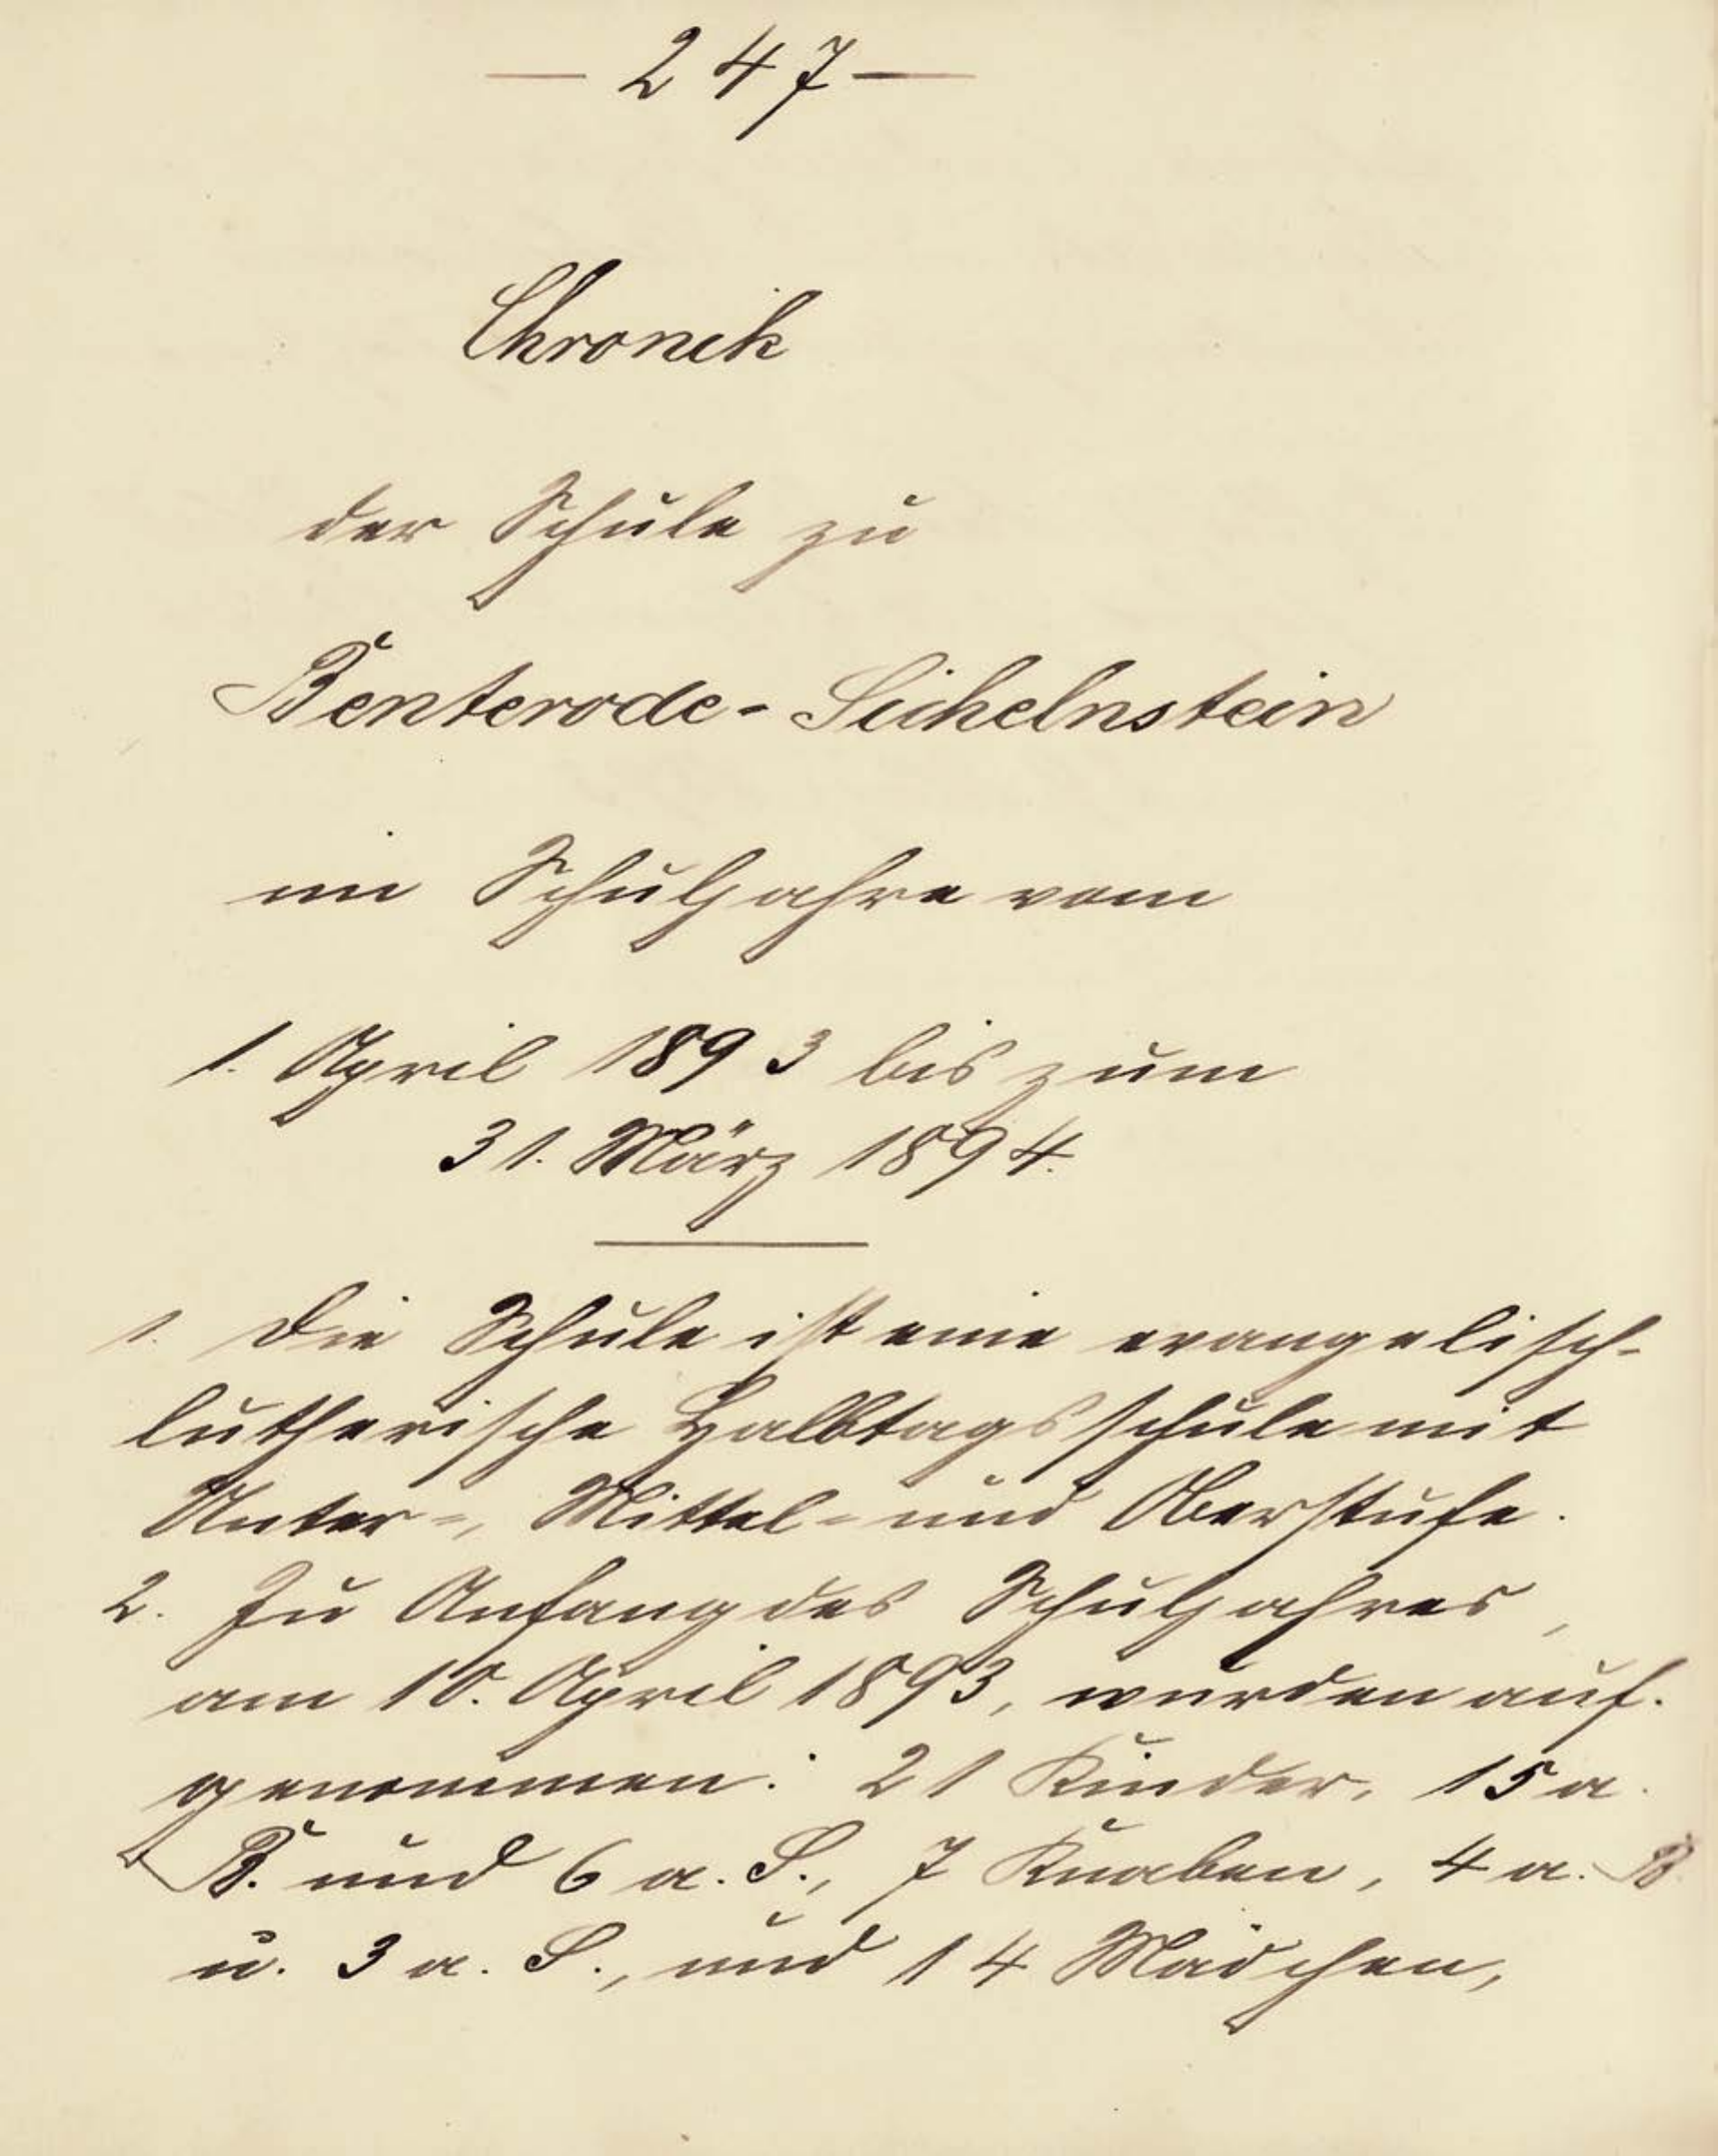 — 247 —
Chronik
der Schule zu
Benterode-Sichelnstein
im Schuljahre vom
1. April 1893 bis zum
31. März 1894.
1. Die Schule ist eine evangelisch-
lutherische Halbtagsschule mit
Unter-, Mittel- und Oberstufe.
2. Zu Anfang des Schuljahres,
am 10. April 1893, wurden auf-
genommen: 21 Kinder, 15 a.
B. und 6 a. S., 7 Knaben, 4 a. B.
u. 3 a. S., und 14 Mädchen,